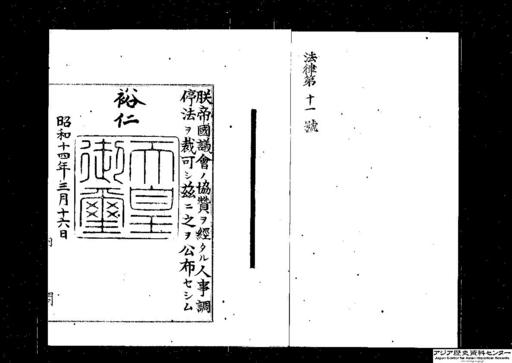 法律第十一號
朕帝國議會ノ協贊ヲ經タル人事調
停法ヲ裁可シ茲ニ之ヲ公布セシム
裕仁
天皇
御璽
昭和十四年三月十六日
アジア歴史資料センター
Japan Center for Asian Historical Records